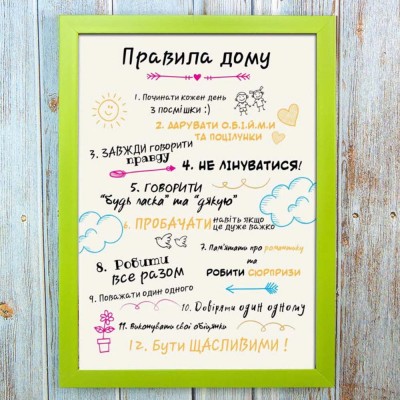 Правила дому
1. Починати кожен день
з посмішки :)
2. ДАРУВАТИ О.Б.І.Й.М.И
ТА ПОЦІЛУНКИ
3. ЗАВЖДИ ГОВОРИТИ
правду
4. НЕ ЛІНУВАТИСЯ!
5. ГОВОРИТИ
"будь ласка" та "дякую"
6. ПРОБАЧАТИ навіть якщо
це дуже важко
7. Пам'ятати про романтику
та
РОБИТИ СЮРПРИЗИ
8. Робити
все разом
9. Поважати один одного
10. Довіряти один одному
11. Виконувати свої обіцянки
12. Бути ЩАСЛИВИМИ !